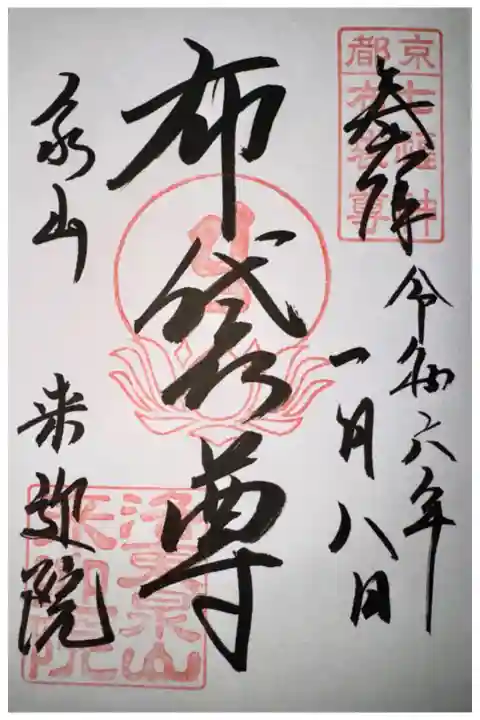 京都
七福神
布袋尊
奉拝
令和六年
一月八日
布袋尊
泉山
来迎院
泉山
来迎院